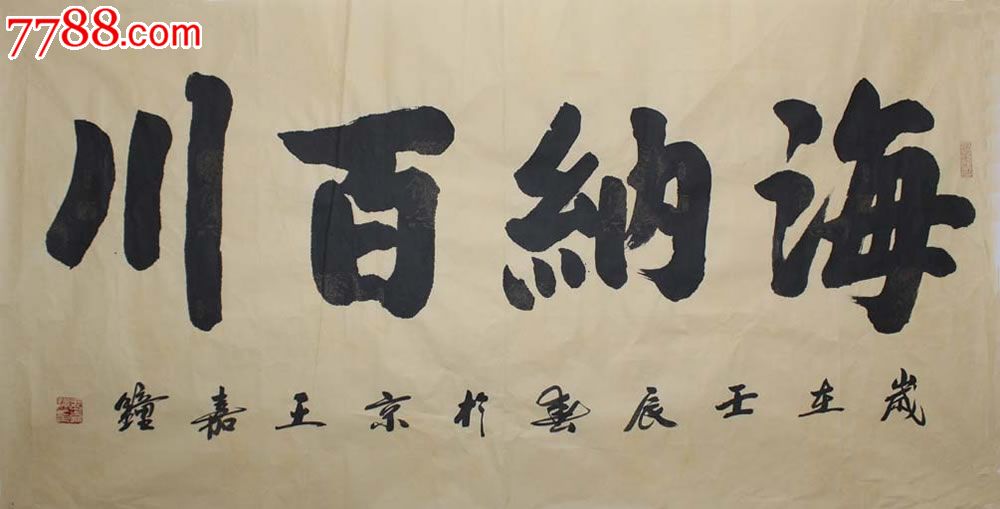 7788.com
海納百川
歲在壬辰春於京王嘉鐘